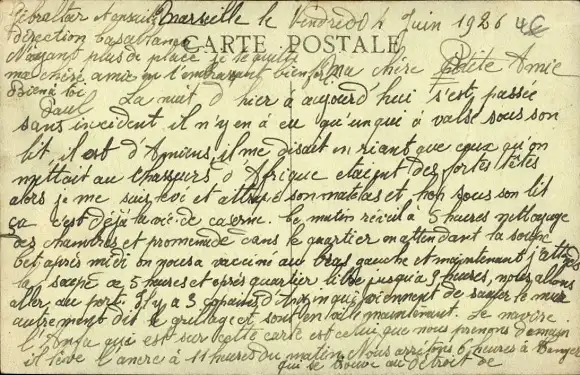 Gibraltar et ensuite
direction Casablanca
N'ayant plus de place je te quitte
ma chère amie en t'embrassant bien fort
Bien à toi
Paul
Marseille le Vendredi 4 Juin 1926
CARTE POSTALE
Ma chère Petite Amie
La nuit d'hier à aujourd'hui s'est passée
sans incident il n'y en à eu qu'un qui à valsé sous son
lit, il est d'Amiens, il me disait en riant que ceux qu'on
mettait au Chasseurs d'Afrique etaient des fortes têtes
alors je me suis levé et attrapé son matelas et hop sous son lit
ça c'est déjà la vie de caserne. Ce matin réveil à 5 heures nettoyage
des chambres et promenade dans le quartier en attendant la soupe
cet après midi on nous a vacciné au bras gauche et maintenant j'attends
la soupe de 5 heures et après quartier libre jusqu'à 9 heures, nous allons
aller au port. Il y a 3 copains qui viennent de sauter le mur
autrement dit le grillage et sont en ville maintenant. Le navire
l'Anfa qui est sur cette carte est celui que nous prenons demain
il lève l'ancre à 11 heures du matin. Nous arrivons 6 heures à
qui se trouve au détroit de